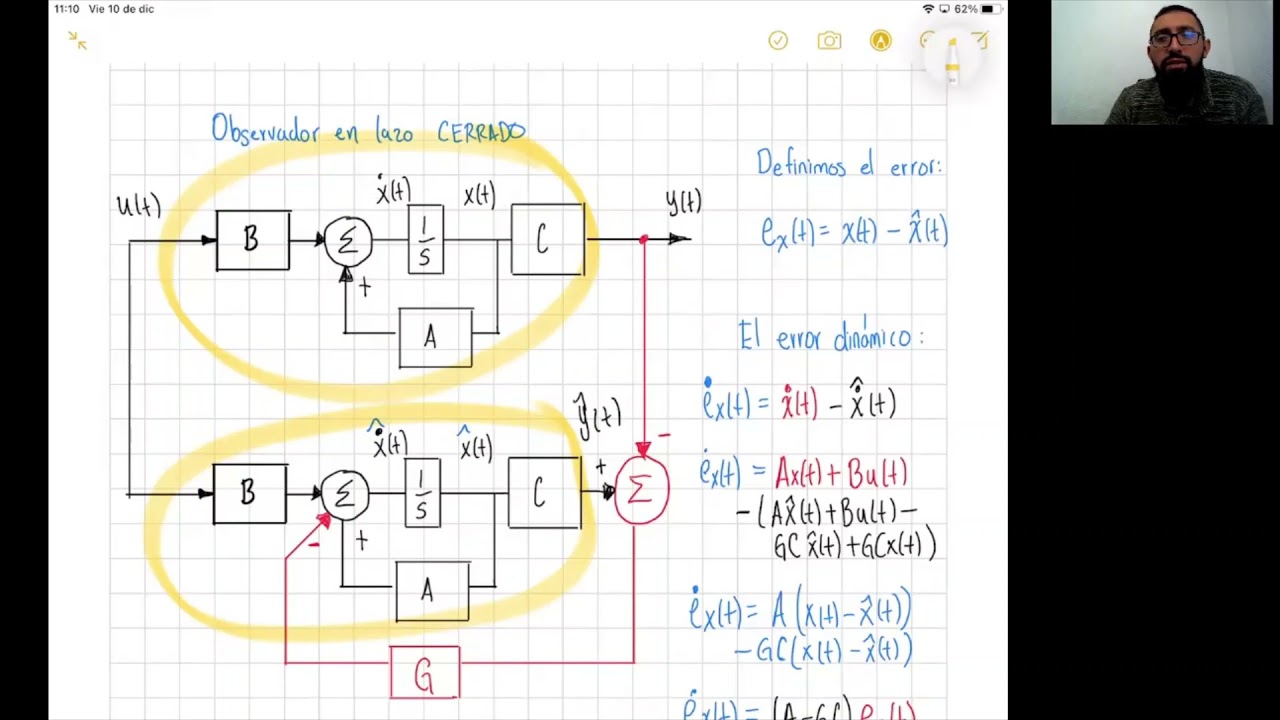 11:10 Vie 10 de dic
62%
Observador en lazo CERRADO
u(t)
B
Σ
+
ẋ(t)
1/s
x(t)
C
y(t)
A
B
Σ
+
-
x̂̇(t)
1/s
x̂(t)
C
ŷ(t)
+
-
Σ
A
G
Definimos el error:
ex(t) = x(t) - x̂(t)
El error dinámico:
ėx(t) = ẋ(t) - x̂̇(t)
ėx(t) = Ax(t) + Bu(t)
-(Ax̂(t) + Bu(t) -
GCx̂(t) + GCx(t))
ėx(t) = A(x(t) - x̂(t))
-GC(x(t) - x̂(t))
ėx(t) = (A-GC) ex(t)